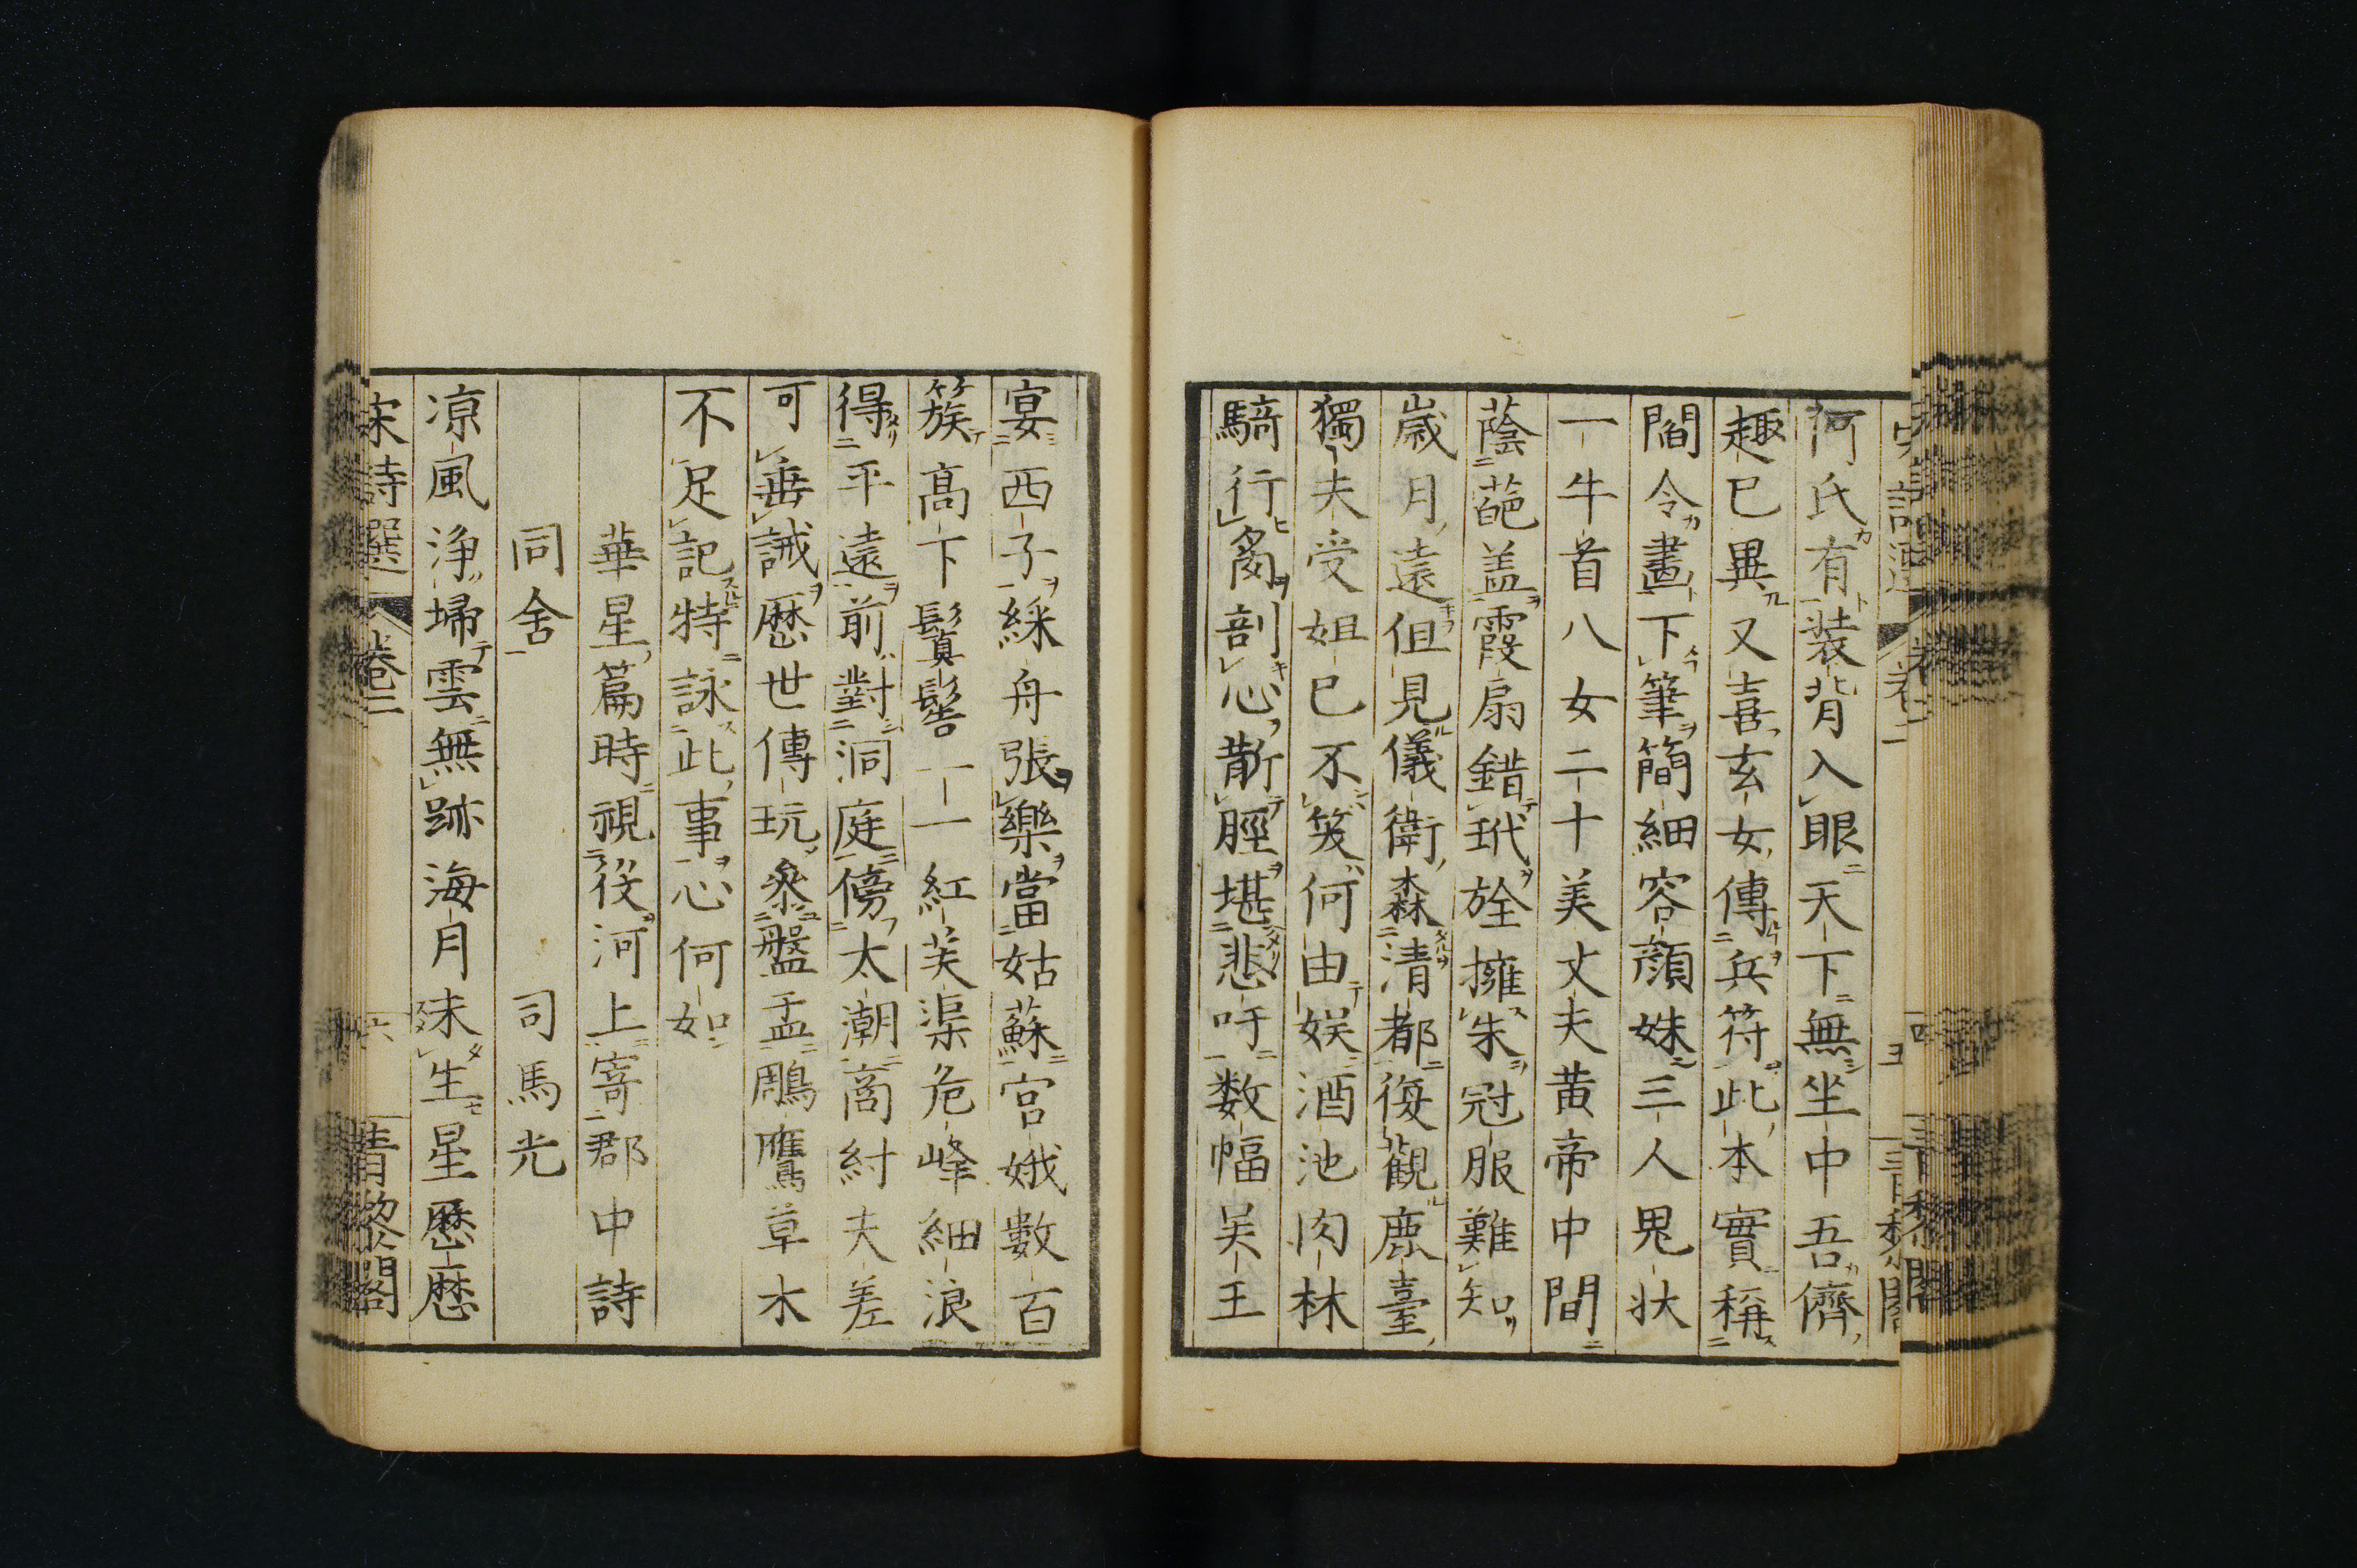 何氏有裝背入眼天下無坐中吾儕
趣已異又喜玄女傳兵符此本實稱
閻令畫下筆簡細容顔姝三人鬼狀
一牛首八女二十美丈夫黃帝中間
蔭葩盖霞扇錯玳旍擁朱冠服難知
歲月遠但見儀衛森清都復觀鹿臺
獨夫受妲已不笑何由娱酒池肉林
騎行芻剖心斮脛堪悲吁數幅吴王
宴西子綵舟張樂當姑蘇宫娥數百
簇高下鬒髻一一紅芙渠危峰細浪
得平遠前對洞庭傍太潮商紂夫差
可垂誡歷世傳玩叅盤盂鵰鷹草木
不足記特詠此事心何如
華星篇時視役河上寄郡中詩
同舍 司馬光
凉風浄埽雲無跡海月未生星歷歷
宋詩選 卷二 六 青藜閣